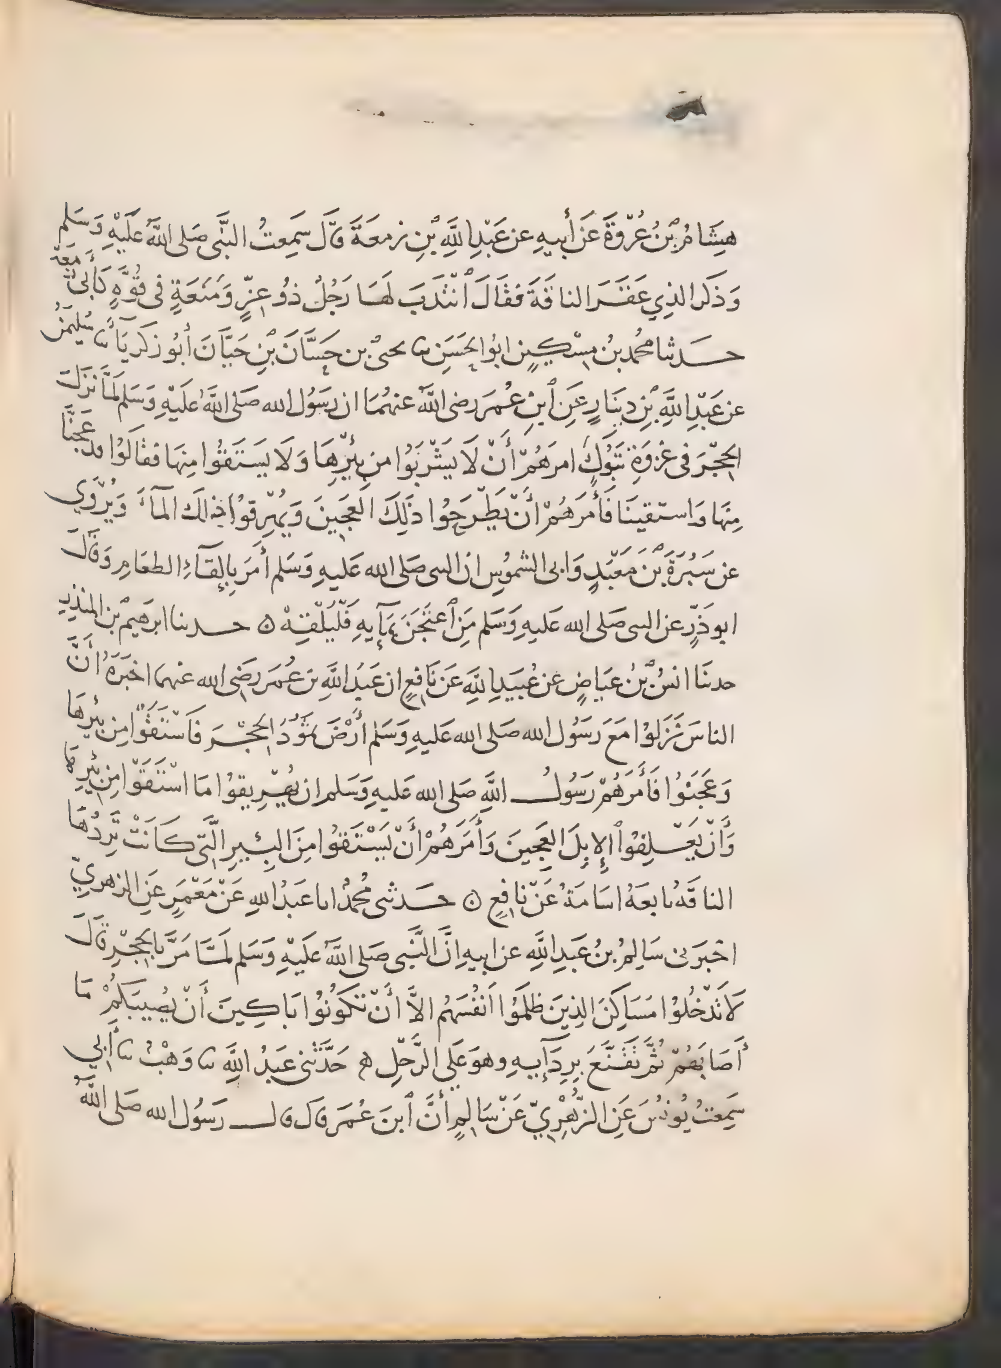 هِشَامُ بْنُ عُرْوَةَ عَنْ أَبِيهِ عن عَبْدِ اللَّهِ بْنِ زمعَةَ قَالَ سَمِعتُ النَّبِىَّ صَلى اللَّهُ عَلَيْهِ وَسَلم
وَذَكَرَ الذِي عَقَرَ الناقةَ فقَالَ ٱنْتَدَبَ لَهَا رَجُلٌ ذُو عِزٍّ وَمَنَعَةٍ فى قُوَّةٍ كَأَبِى زَمْعَةَ
حدثنا محمد بنُ مِسْكِينٍ ابُو الحَسَنِ نا يحيىَ بن حَسَّانَ بْنِ حَيَّانَ أبُو زكَرِيَآءَ نا سُليمٰنُ
عن عَبْدِ اللَّهِ بْنِ دِينَارٍ عَنِ ٱبنِ عُمَرَ رضى اللَّهُ عنهُمَا ان رَسُولَ الله صَلَى اللَّهُ عَليْهِ وَسَلم لَمَّا نَزَلَ
الحِجْرَ فى غزوَةِ تَبُوكَ امرَهُمْ أَنْ لَا يَشْرَبُوا من بِئْرِهَا وَلَا يَسْتَقُوا مِنهَا فقَالُوا قدْ عَجَنَّا
مِنهَا وَاستَقينَا فَأَمَرَهُمْ أَنْ يَطْرَحُوا ذٰلِكَ العَجِينَ وَيُهْرِقُوا ذٰلكَ المآءَ وَيُرْوَى
عن سَبْرَةَ بْنِ مَعْبَدٍ وَابى الشمُوسِ ان النبى صَلَى الله عَليهِ وَسَلم أَمَرَ بِإِلْقَآءِ الطعَامِ وَقَالَ
ابو ذَرٍّ عن النبى صَلَى الله عَليهِ وَسَلم مَنِ ٱعتَجَنَ بِمَآئِهِ فَلْيُلْقِهْ ۞ حدثنا ابرَهِيم بْن المنذِرِ
حدثنَا انسُ بْنُ عيَاضٍ عن عُبَيدِ اللَّهِ عَن نَافِعٍ ان عَبْدَ اللَّهِ بن عُمَرَ رَضى الله عنهما اخبَرَهُ أنَّ
الناسَ نَزَلُوا مَعَ رَسُول الله صَلى الله عَليهِ وَسَلم أَرْضَ ثَمُودَ الحِجْرَ فَاسْتَقَوْا مِن بِئْرِهَا
وَعَجَنُوا فَأَمَرَهُمْ رَسُولُ اللَّهِ صَلى الله عَليهِ وَسَلم ان يُهْرِيقُوا مَا اسْتَقَوْا مِن بِئْرِهَا
وَأَنْ يَعْلِفُوا ٱلإِبِلَ العَجِينَ وَأَمَرَهُمْ أَنْ يَسْتَقُوا مِنَ البِئِيرِ الَّتى كَانَتْ تَرِدُهَا
الناقة تابعَهُ اسَامَةُ عَنْ نَافِعٍ ۞ حَدثنى مُحمدٌ انا عَبدُ اللهِ عَنْ مَعْمَرٍ عَنِ الزهرِيِّ
اخْبَرَنى سَالِمُ بنُ عَبدِ اللَّهِ عن ابيهِ انَّ النَّبى صَلى اللَّهُ عَلَيْهِ وَسَلم لَمَّا مَرَّ بالحِجْرِ قَالَ
لَا تَدْخُلُوا مَسَاكِنَ الذِينَ ظلَمُوا انفُسَهُم الَّا أَنْ تَكُونُوا بَاكِينَ أَنْ يُصِيبَكُمْ مَا
أَصَابَهُمْ ثُمَّ تَقَنَّعَ بِرِدَآئِهِ وهوَ عَلَى الرَّحْلِ ه حَدَّثَنى عَبدُ اللَّهِ نا وَهْبٌ نا أَبِي
سَمِعتُ يُونُسَ عَنِ الزُّهْرِيِّ عَنْ سَالِمٍ أَنَّ ٱبنَ عُمَرَ قَالَ قال رَسُولُ الله صَلى اللَّهُ